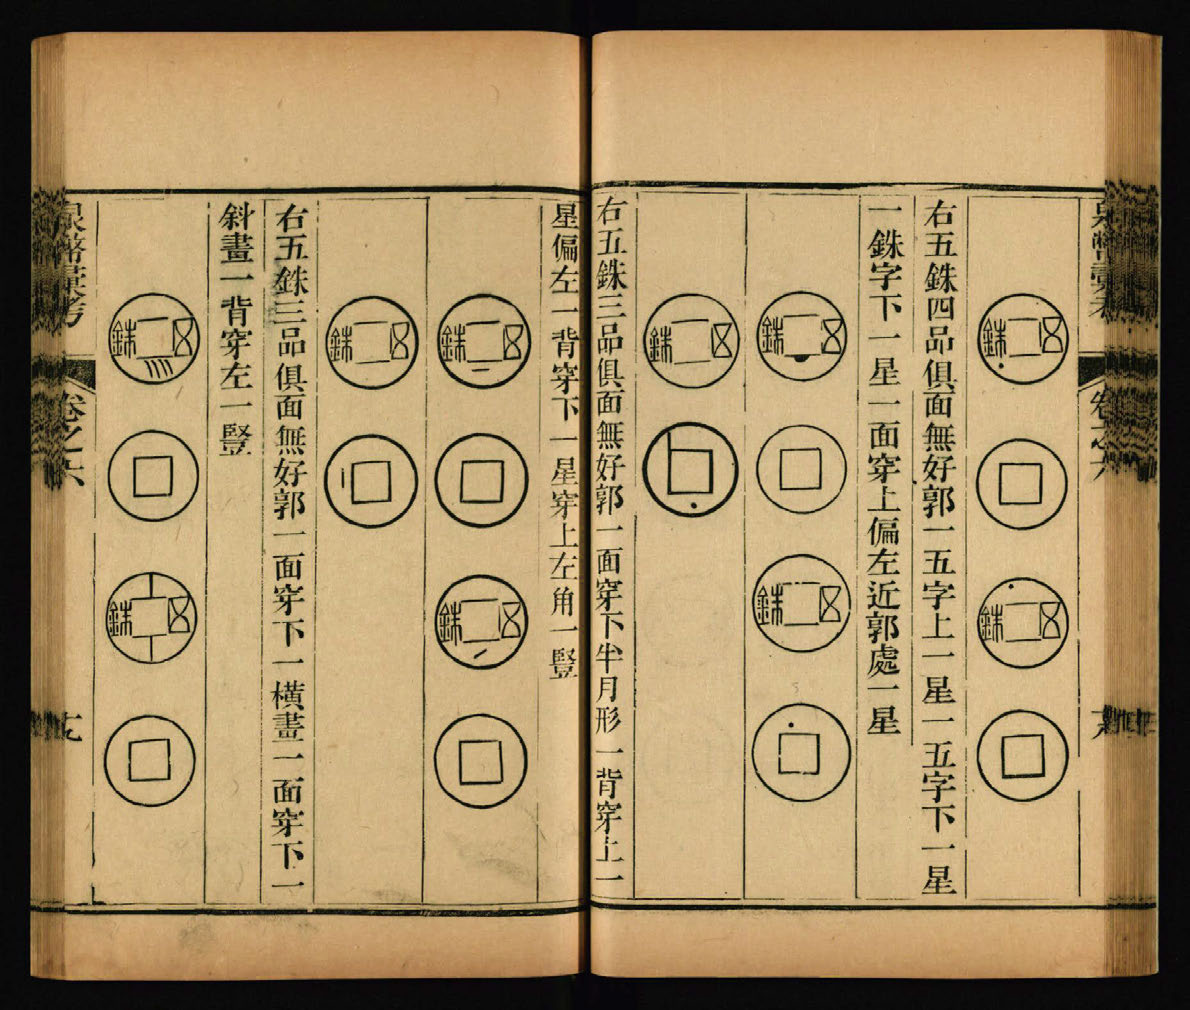 泉幣彙考
卷之六
五銖
五銖
右五銖四品俱面無好郭一五字上一星一五字下一星
一銖字下一星一面穿上偏左近郭處一星
五銖
五銖
五銖
右五銖三品俱面無好郭一面穿下半月形一背穿上一
星偏左一背穿下一星穿上左角一豎
五銖
五銖
五銖
右五銖三品俱面無好郭一面穿下一橫畫一面穿下一
斜畫一背穿左一豎
五銖
五銖
泉幣彙考
卷之六